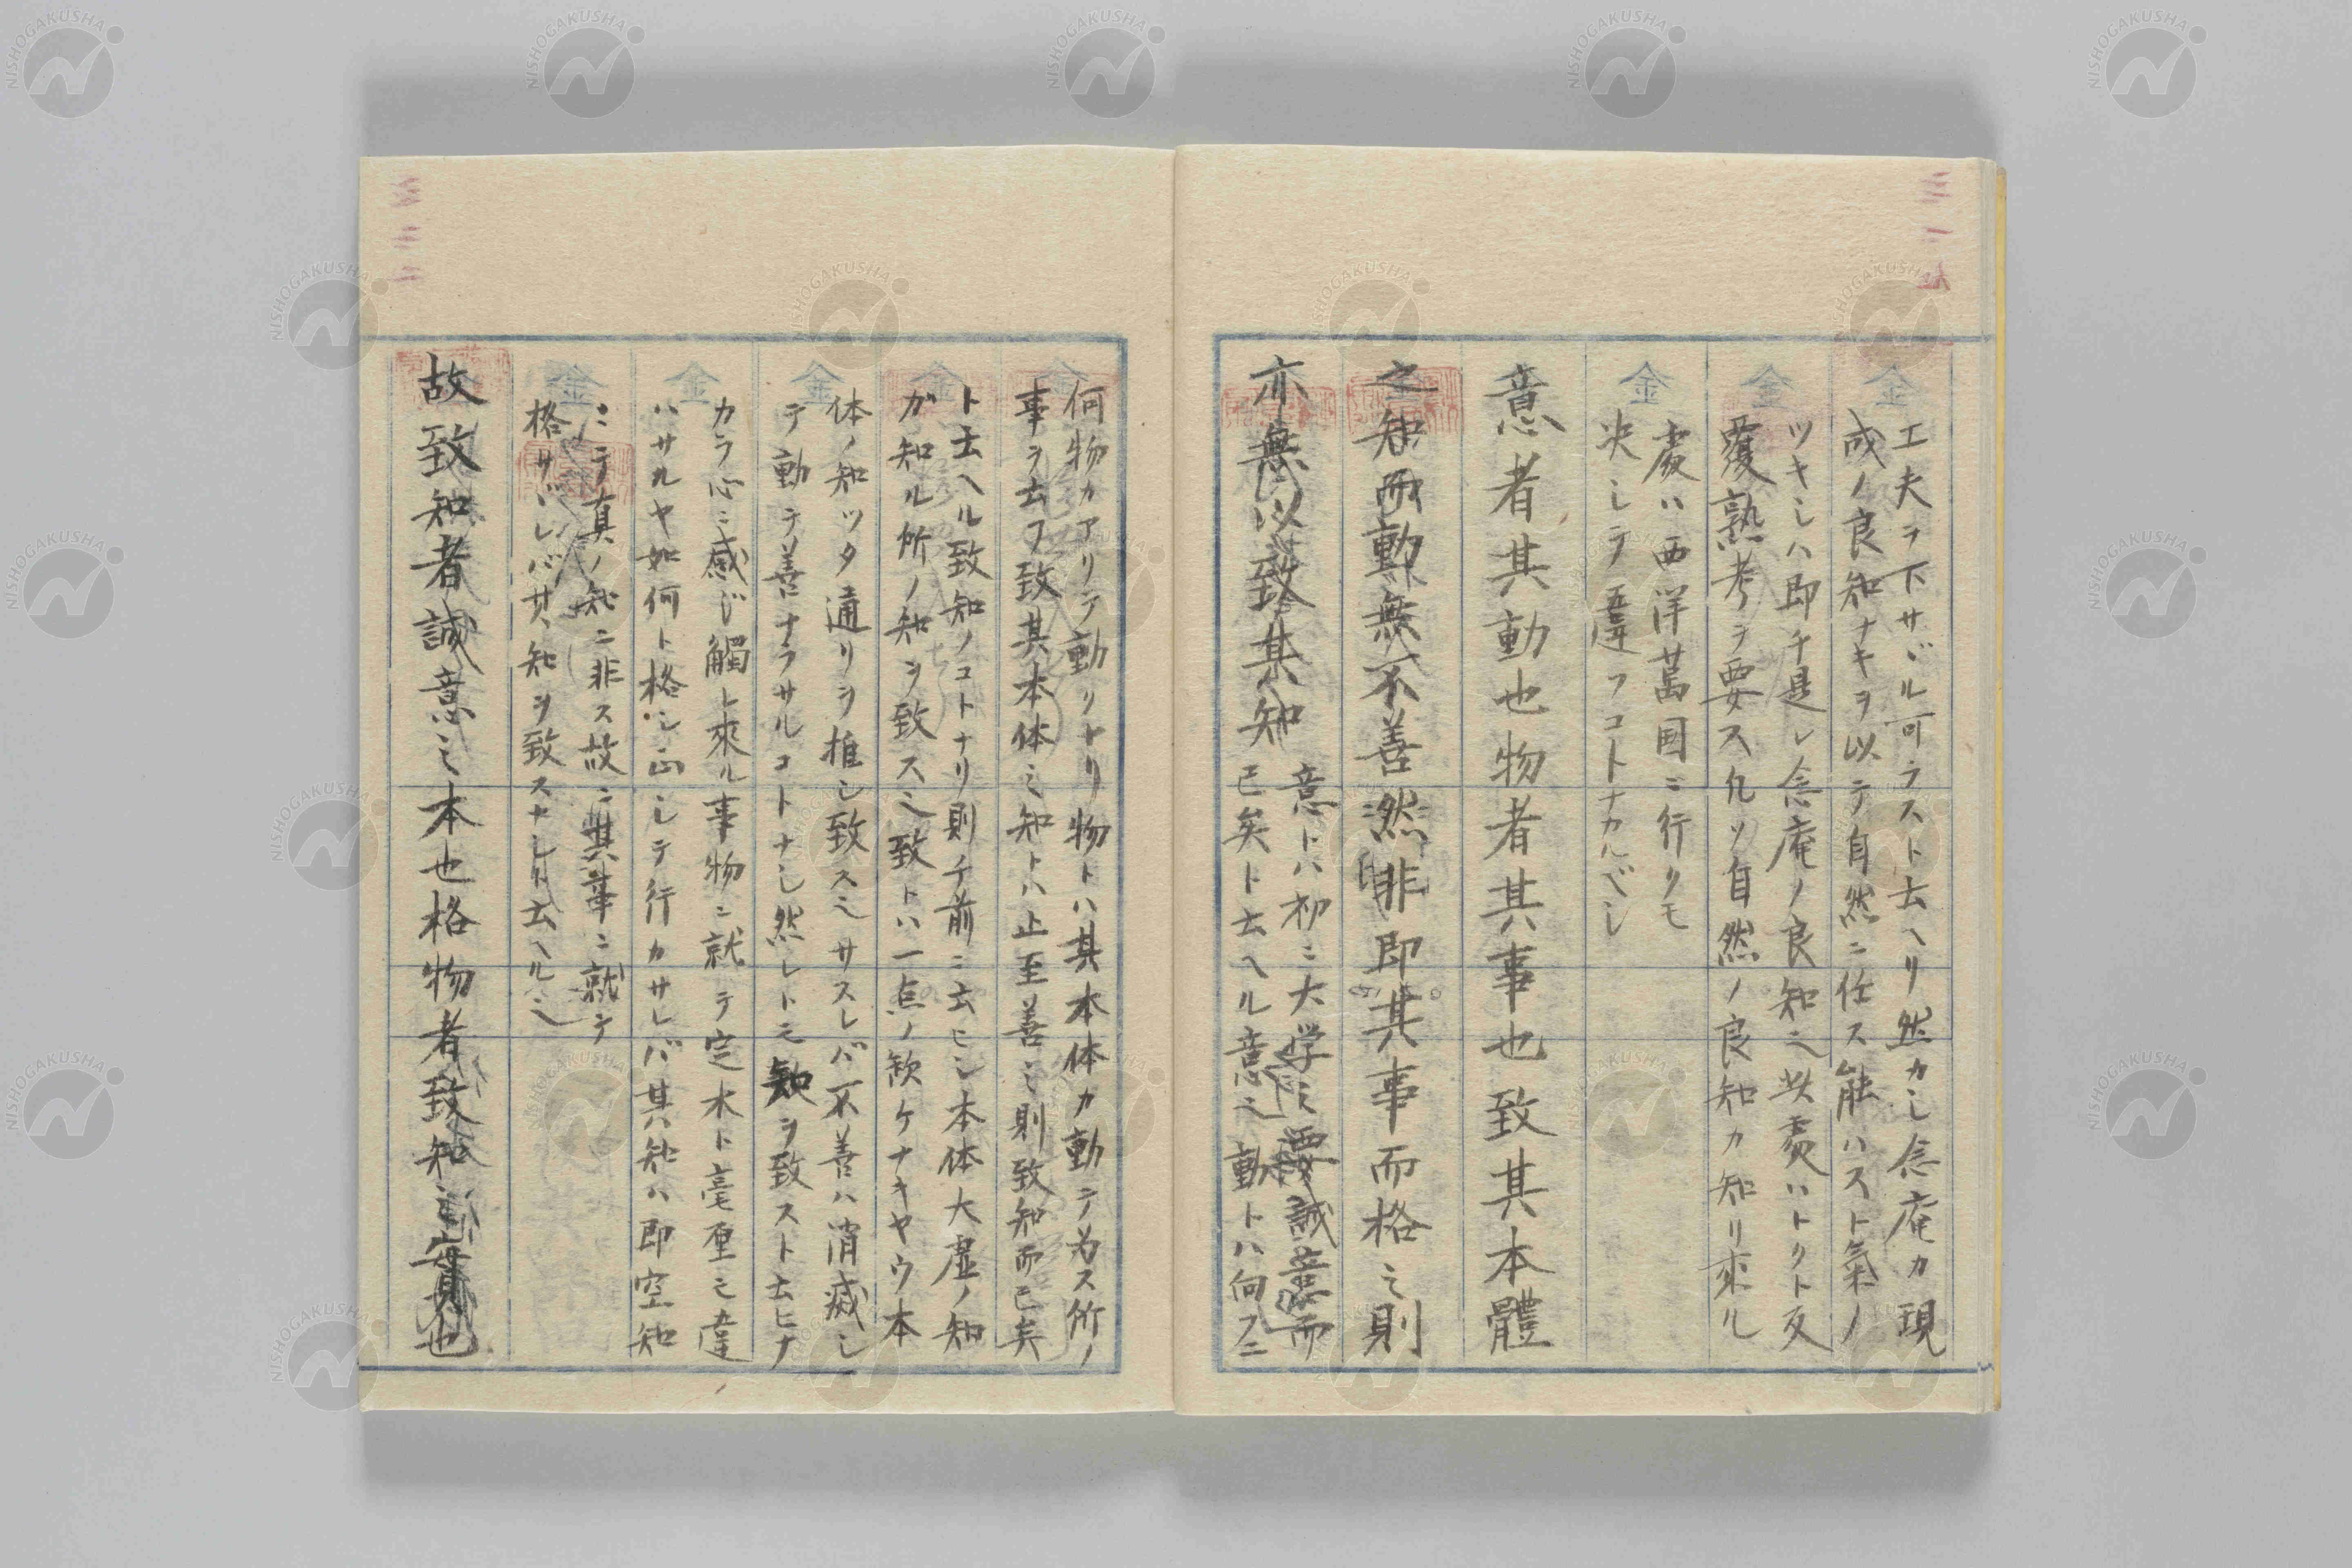 工夫ヲ下サヾル可ラスト云ヘリ然カシ念庵カ現
成ノ良知ナキヲ以テ自然ニ任ス能ハスト氣ノ
ツキシハ即チ是レ念庵ノ良知也此処ハトクト反
覆熟考ヲ要ス凡ソ自然ノ良知カ知リ來ル
処ハ西洋萬国ニ行クモ
決シテ違フコトナカルベシ
意者其動也物者其事也致其本體
之知而動無不善然非即其事而格之則
亦無以致其知
意トハ初ニ大学之要誠意而
已矣ト云ヘル意也動トハ向フニ
何物カアリテ動クトリ物トハ其本体カ動テ為ス所ノ
事ヲ云フ致其本体之知トハ止至善之則致知而已矣
ト云ヘル致知ノコトナリ則チ前ニ云ヒシ本体大虚ノ知
ガ知ル所ノ知ヲ致ス也致トハ一点ノ欠ケナキヤウ本
体ノ知ツタ通リヲ推シ致ス也サスレバ不善ハ消滅シ
テ動テ善ナラサルコトナシ然レトモ知ヲ致スト云ヒナ
カラ心ニ感ジ觸レ來ル事物ニ就テ定木ト毫厘モ違
ハサルヤ如何ト格シ正シテ行カサレバ其知ハ即空知
ニテ真ノ知ニ非ス故ニ其事ニ就テ
格サバレバ其知ヲ致スナシト云ヘル也
故致知者誠意之本也格物者致知之實也
三一九
三二二
金
NISHOGAKUSHA